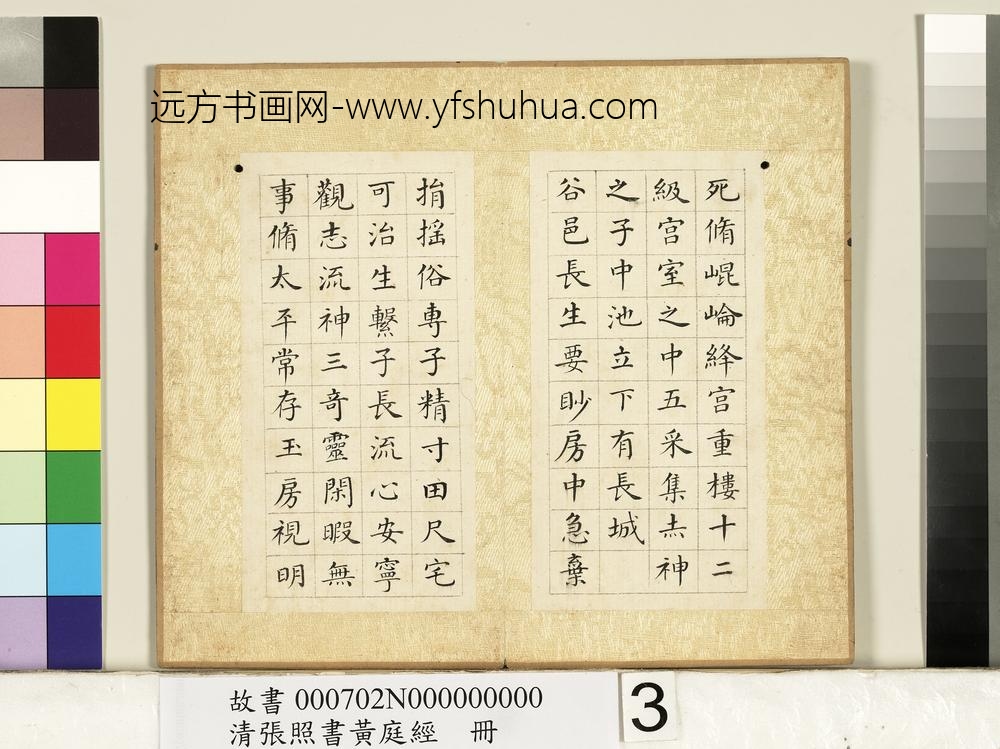 远方书画网-www.yfshuhua.com
死脩崐崘絳宫重樓十二
級宫室之中五采集赤神
之子中池立下有長城
谷邑長生要眇房中急棄
捐搖俗専子精寸田尺宅
可治生繫子長流心安寧
觀志流神三奇靈閑暇無
事脩太平常存玉房視明
故書 000702N000000000
清張照書黃庭經 冊
3